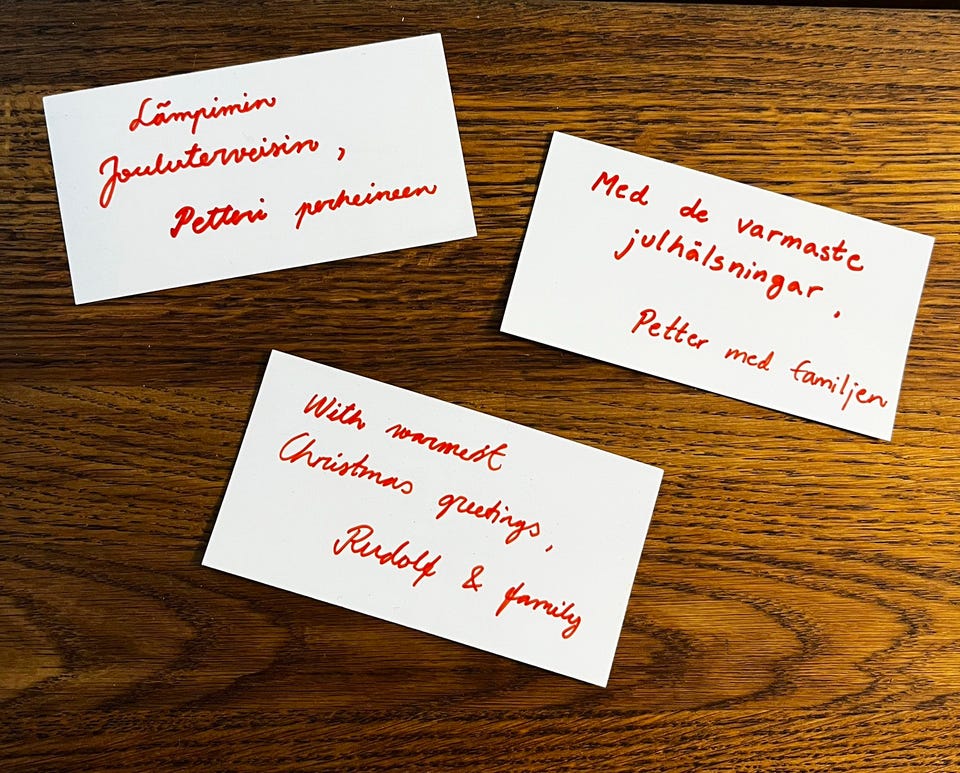 Lämpimin
Jouluterveisin,
Petteri perheineen
Med de varmaste
julhälsningar,
Petter med familjen
With warmest
Christmas greetings,
Rudolf & family